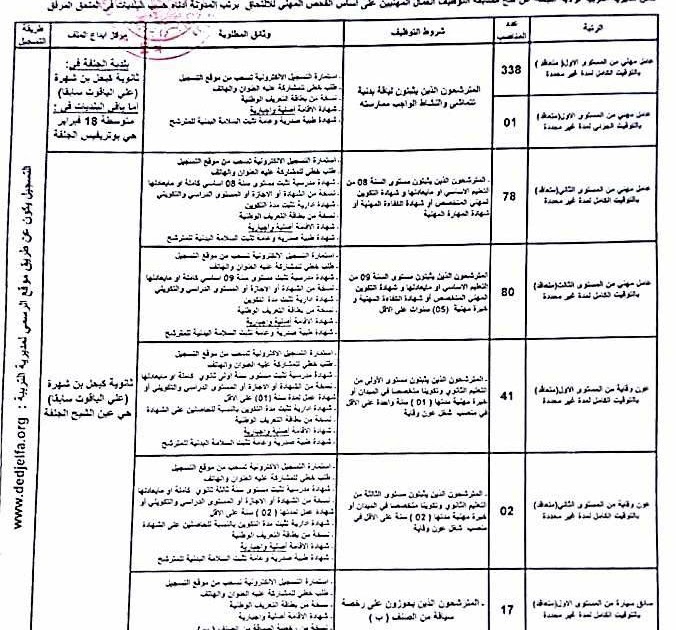 الرتبة
عدد المناصب
شروط التوظيف
وثائق المطلوبة
مركز ايداع الملف
طريقة التسجيل
عامل مهني من المستوى الاول(متعاقد)
بالتوقيت الكامل لمدة غير محددة
338
المترشحون الذين يثبتون لياقة بدنية
تتماشى والنشاط الواجب ممارسته
- استمارة التسجيل الالكترونية تسحب من موقع التسجيل
- طلب خطي للمشاركة عليه العنوان والهاتف
- نسخة من بطاقة التعريف الوطنية
- شهادة الاقامة أصلية وإجبارية
- شهادة طبية صدرية وعامة تثبت السلامة البدنية للمترشح
بلدية الجلفة في:
ثانوية كبحل بن شهرة
(علي الباقوت سابقا)
أما باقي البلديات في :
متوسطة 18 فبراير
حي بوتريفيس الجلفة
عامل مهني من المستوى الاول(متعاقد)
بالتوقيت الجزئي لمدة غير محددة
01
عامل مهني من المستوى الثاني(متعاقد)
بالتوقيت الكامل لمدة غير محددة
78
المترشحون الذين يثبتون مستوى السنة 08 من
التعليم الاساسي أو مايعادلها و شهادة التكوين
المهني المتخصص أو شهادة الكفاءة المهنية أو
شهادة المهارة المهنية
- استمارة التسجيل الالكترونية تسحب من موقع التسجيل
- طلب خطي للمشاركة عليه العنوان والهاتف
- شهادة مدرسية تثبت مستوى سنة 08 اساسي كاملة او مايعادلها
- نسخة من الشهادة أو الاجازة أو المستوى الدراسي والتكويني
- شهادة ادارية تثبت مدة التكوين
- نسخة من بطاقة التعريف الوطنية
- شهادة الاقامة أصلية وإجبارية
- شهادة طبية صدرية وعامة تثبت السلامة البدنية للمترشح
عامل مهني من المستوى الثالث(متعاقد)
بالتوقيت الكامل لمدة غير محددة
80
المترشحون الذين يثبتون مستوى السنة 09 من
التعليم الاساسي أو مايعادلها و شهادة التكوين
المهني المتخصص أو شهادة الكفاءة المهنية و
خبرة مهنية (05) سنوات على الأقل
- استمارة التسجيل الالكترونية تسحب من موقع التسجيل
- طلب خطي للمشاركة عليه العنوان والهاتف
- شهادة مدرسية تثبت مستوى سنة 09 اساسي كاملة أو مايعادلها
- نسخة من الشهادة أو الاجازة أو المستوى الدراسي والتكويني
- شهادة ادارية تثبت مدة التكوين
- نسخة من بطاقة التعريف الوطنية
- شهادة الاقامة أصلية وإجبارية
- شهادة طبية صدرية وعامة تثبت السلامة البدنية للمترشح
عون وقاية من المستوى الاول(متعاقد)
بالتوقيت الكامل لمدة غير محددة
41
- المترشحون الذين يثبتون مستوى الأولى من
التعليم الثانوي وتكوينا متخصصا في الميدان أو
خبرة مهنية مدتها ( 01 ) سنة واحدة على الأقل
في منصب شغل عون وقاية
- استمارة التسجيل الالكترونية تسحب من موقع التسجيل
- طلب خطي للمشاركة عليه العنوان والهاتف
- شهادة مدرسية تثبت مستوى سنة أولى ثانوي كاملة أو مايعادلها
- نسخة من الشهادة أو الاجازة أو المستوى الدراسي والتكويني أو
شهادة عمل لمدة سنة (01) على الأقل
- شهادة ادارية تثبت مدة التكوين بالنسبة للحاصلين على الشهادة
- نسخة من بطاقة التعريف الوطنية
- شهادة الاقامة أصلية وإجبارية
- شهادة طبية صدرية وعامة تثبت السلامة البدنية للمترشح
ثانوية كبحل بن شهرة
(علي الباقوت سابقا)
حي عين الشيح الجلفة
عون وقاية من المستوى الثاني(متعاقد)
بالتوقيت الكامل لمدة غير محددة
02
- المترشحون الذين يثبتون مستوى الثالثة من
التعليم الثانوي و تكوينا متخصصا في الميدان أو
خبرة مهنية مدتها ( 02 ) سنة على الأقل في
منصب شغل عون وقاية
- استمارة التسجيل الالكترونية تسحب من موقع التسجيل
- طلب خطي للمشاركة عليه العنوان والهاتف
- شهادة مدرسية تثبت مستوى سنة ثالثة ثانوي كاملة أو مايعادلها
- نسخة من الشهادة أو الاجازة أو المستوى الدراسي والتكويني أو
شهادة عمل لمدتها ( 02 ) سنة على الأقل
- شهادة ادارية تثبت مدة التكوين بالنسبة للحاصلين على الشهادة
- نسخة من بطاقة التعريف الوطنية
- شهادة الاقامة أصلية وإجبارية
- شهادة طبية صدرية وعامة تثبت السلامة البدنية للمترشح
سائق سيارة من المستوى الاول(متعاقد)
بالتوقيت الكامل لمدة غير محددة
17
- المترشحون الذين يحوزون على رخصة
سياقة من الصنف ( ب )
- استمارة التسجيل الالكترونية تسحب من موقع التسجيل
- طلب خطي للمشاركة عليه العنوان والهاتف
- نسخة من بطاقة التعريف الوطنية
- شهادة الاقامة أصلية وإجبارية
- نسخة من رخصة السياقة من الصنف ( ب )
التسجيل يكون عن طريق موقع الرسمي لمديرية التربية : www.dedjelfa.org